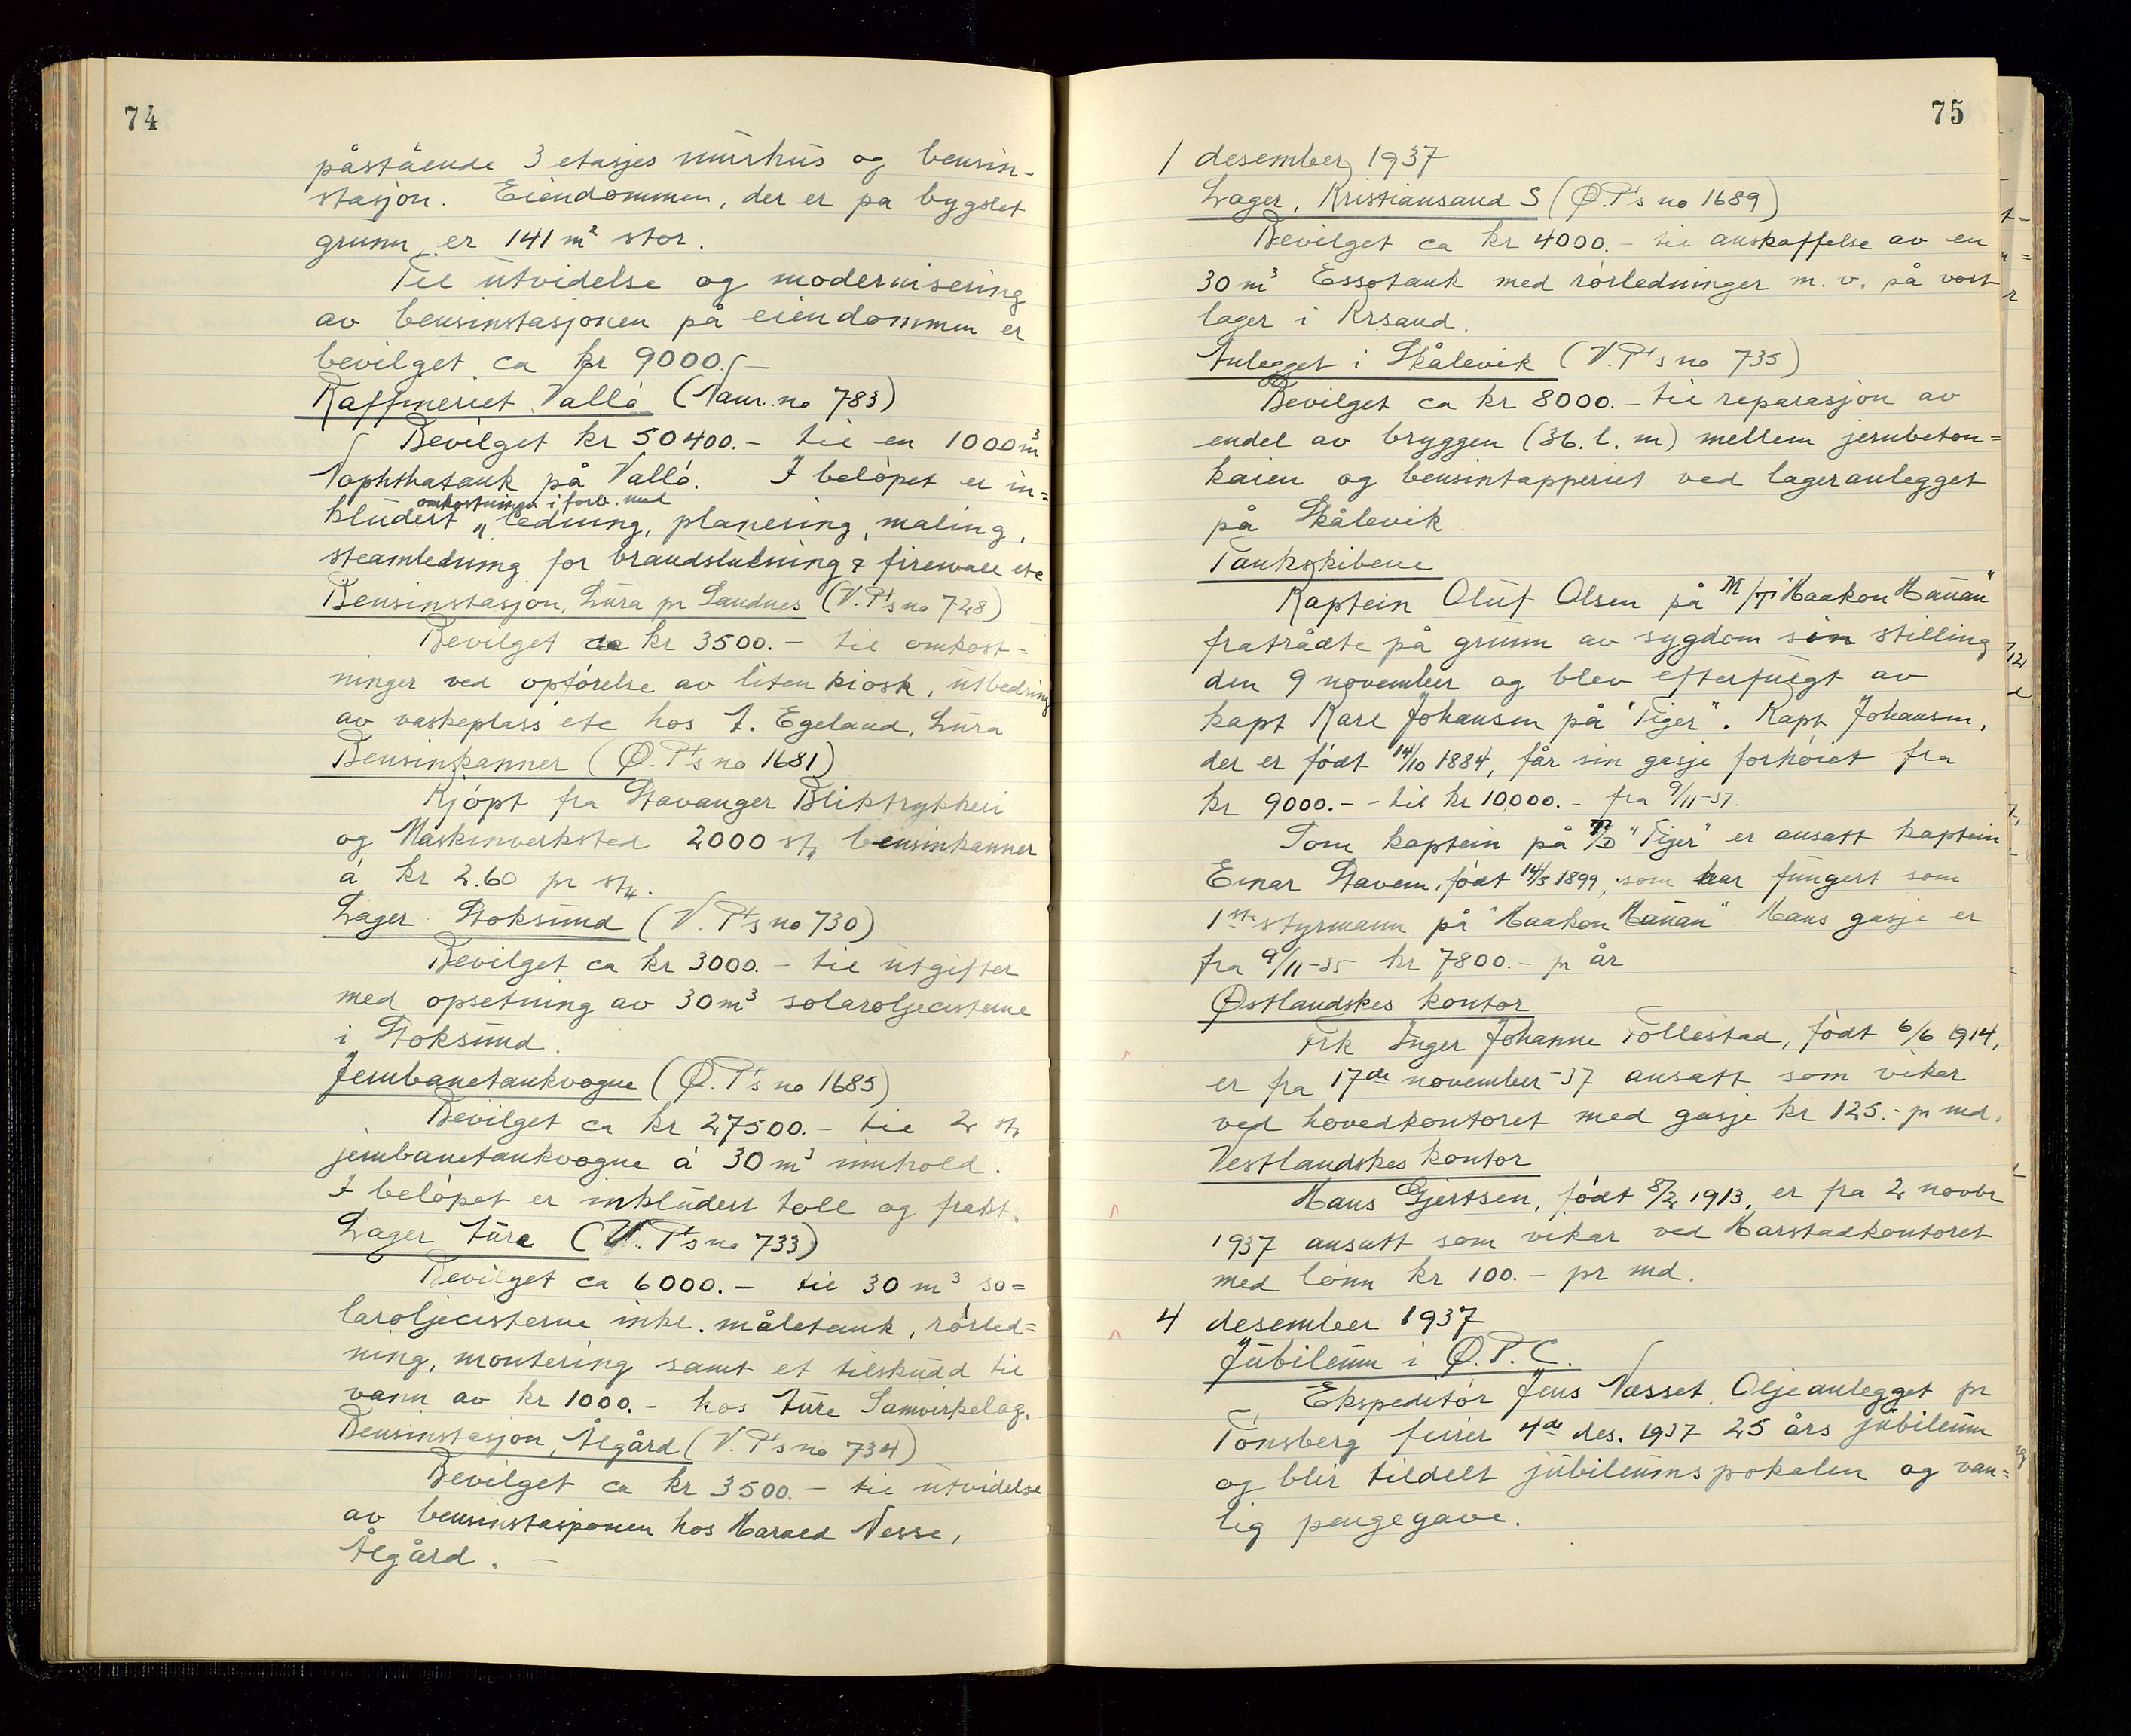 74
påstående 3 etasjes murhus og bensin-
stasjon. Eiendommen, der er på bygslet
grunn, er 141 m² stor.
Til utvidelse og modernisering
av bensinstasjonen på eiendommen er
bevilget ca kr 9000.-
Raffineriet Vallö (Naur. no 783)
Bevilget kr 50400.- til en 1000 m³
Naphthatank på Vallö. I belöpet er in=
omkostninger i forb. med
kludert " ledning, planering, maling,
steamledning for brandslukning & firewall etc
Bensinstasjon, Lura pr Sandnes (V.P's no 728)
Bevilget ca kr 3500.- til omkost=
ninger ved opförelse av liten kiosk, utbedring
av vaskeplass etc hos J. Egeland, Lura
Bensinkanner (Ø.P's no 1681)
Kjöpt fra Stavanger Bliktrykkeri
og Maskinverksted 2000 stk bensinkanner
á kr 2.60 pr stk.
Lager Stoksund (V.P's no 730)
Bevilget ca kr 3000.- til utgifter
med opsetning av 30 m³ solaroljecisterne
i Stoksund.
Jernbanetankvogne (Ø.P's no 1685)
Bevilget ca kr 27500.- til 2 stk
jernbanetankvogne á 30 m³ innhold.
I belöpet er inkludert toll og frakt.
Lager Ture (V.P's no 733)
Bevilget ca 6000.- til 30 m³ so=
laroljecisterne inkl. måletank, rörled=
ning, montering samt et tilskudd til
vann av kr 1000.- hos Ture Samvirkelag.
Bensinstasjon, Ålgård (V.P's no 734)
Bevilget ca kr 3500.- til utvidelse
av bensinstasjonen hos Harald Nesse,
Ålgård. -
75
1 desember 1937
Lager, Kristiansand S (Ø.P's no 1689)
Bevilget ca kr 4000.- til anskaffelse av en
30 m³ Essotank med rörledninger m.v. på vort
lager i Krsand.
Anlegget i Skålevik (V.P's no 735)
Bevilget ca kr 8000.- til reparasjon av
endel av bryggen (36. l. m) mellem jernbeton=
kaien og bensintapperiet ved lageranlegget
på Skålevik.
Tankskibene
Kaptein Oluf Olsen på M/T "Haakon Hauan"
fratrådte på grunn av sygdom sin stilling
den 9 november og blev efterfulgt av
kapt Karl Johansen på "Tiger". Kapt Johansen,
der er födt 14/10 1884, får sin gasje forhöiet fra
kr 9000.- - til kr 10.000.- fra 9/11-37.
Som kaptein på "Tiger" er ansatt kaptein
Einar Stavem, födt 14/5 1899, som har fungert som
1ste styrmann på "Haakon Hauan". Hans gasje er
fra 9/11-35 kr 7800.- pr år
Østlandskes kontor
Frk Inger Johanne Tollestad, födt 6/6 1914,
er fra 17de november -37 ansatt som vikar
ved hovedkontoret med gasje kr 125.- pr md.
Vestlandskes kontor
Hans Gjertsen, födt 8/2 1913, er fra 2 novbr
1937 ansatt som vikar ved Harstadkontoret
med lönn kr 100.- pr md.
4 desember 1937
Jubileum i Ø.P.C.
Ekspeditör Jens Næsset, Oljeanlegget pr
Tönsberg feirer 4de des. 1937 25 års jubileum
og blir tildelt jubileumspokalen og van=
lig pengegave.